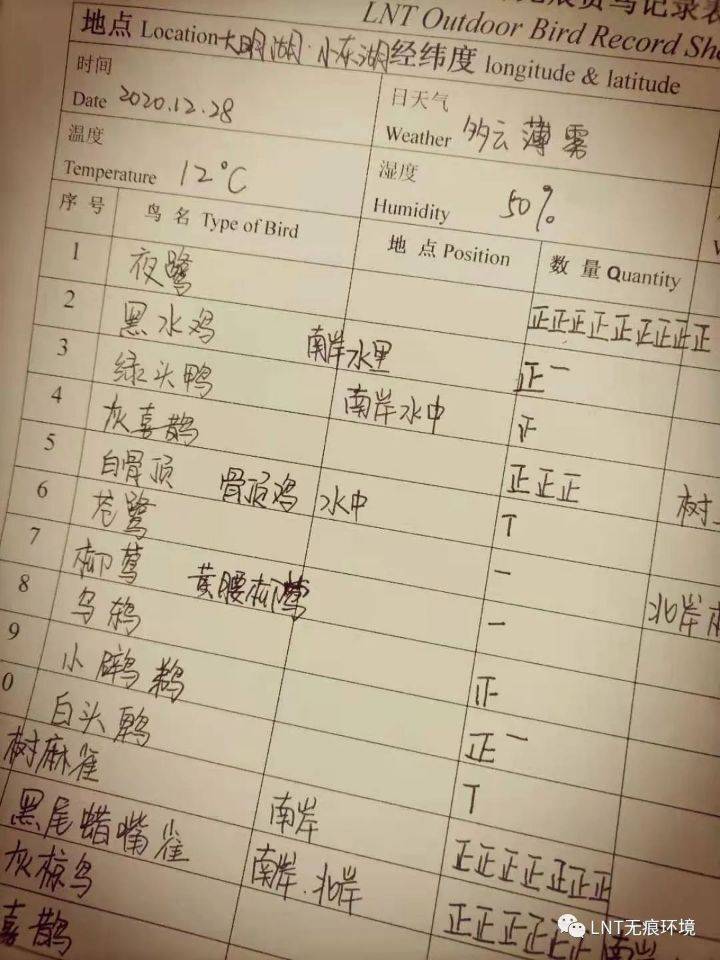 观鸟记录表
LNT Outdoor Bird Record She
地点 Location 大明湖·小东湖 经纬度 longitude & latitude
时间
Date 2020.12.28
日天气
Weather 多云 薄雾
温度
Temperature 12°C
湿度
Humidity 50%
序号 鸟名 Type of Bird 地点 Position 数量 Quantity
1 夜鹭 正正正正正正正正
2 黑水鸡 南岸水里 正一
3 绿头鸭 南岸水中 正
4 灰喜鹊 正正正
5 白骨顶 骨顶鸡 水中 T 树
6 苍鹭 一
7 柳莺 黄腰柳莺 一 北岸
8 乌鸫 正
9 小䴙䴘 正一
0 白头鹎 T
树麻雀 南岸 正正正正正正正
黑尾蜡嘴雀 南岸.北岸 正正正正正正 南岸
灰椋鸟
喜鹊
LNT无痕环境